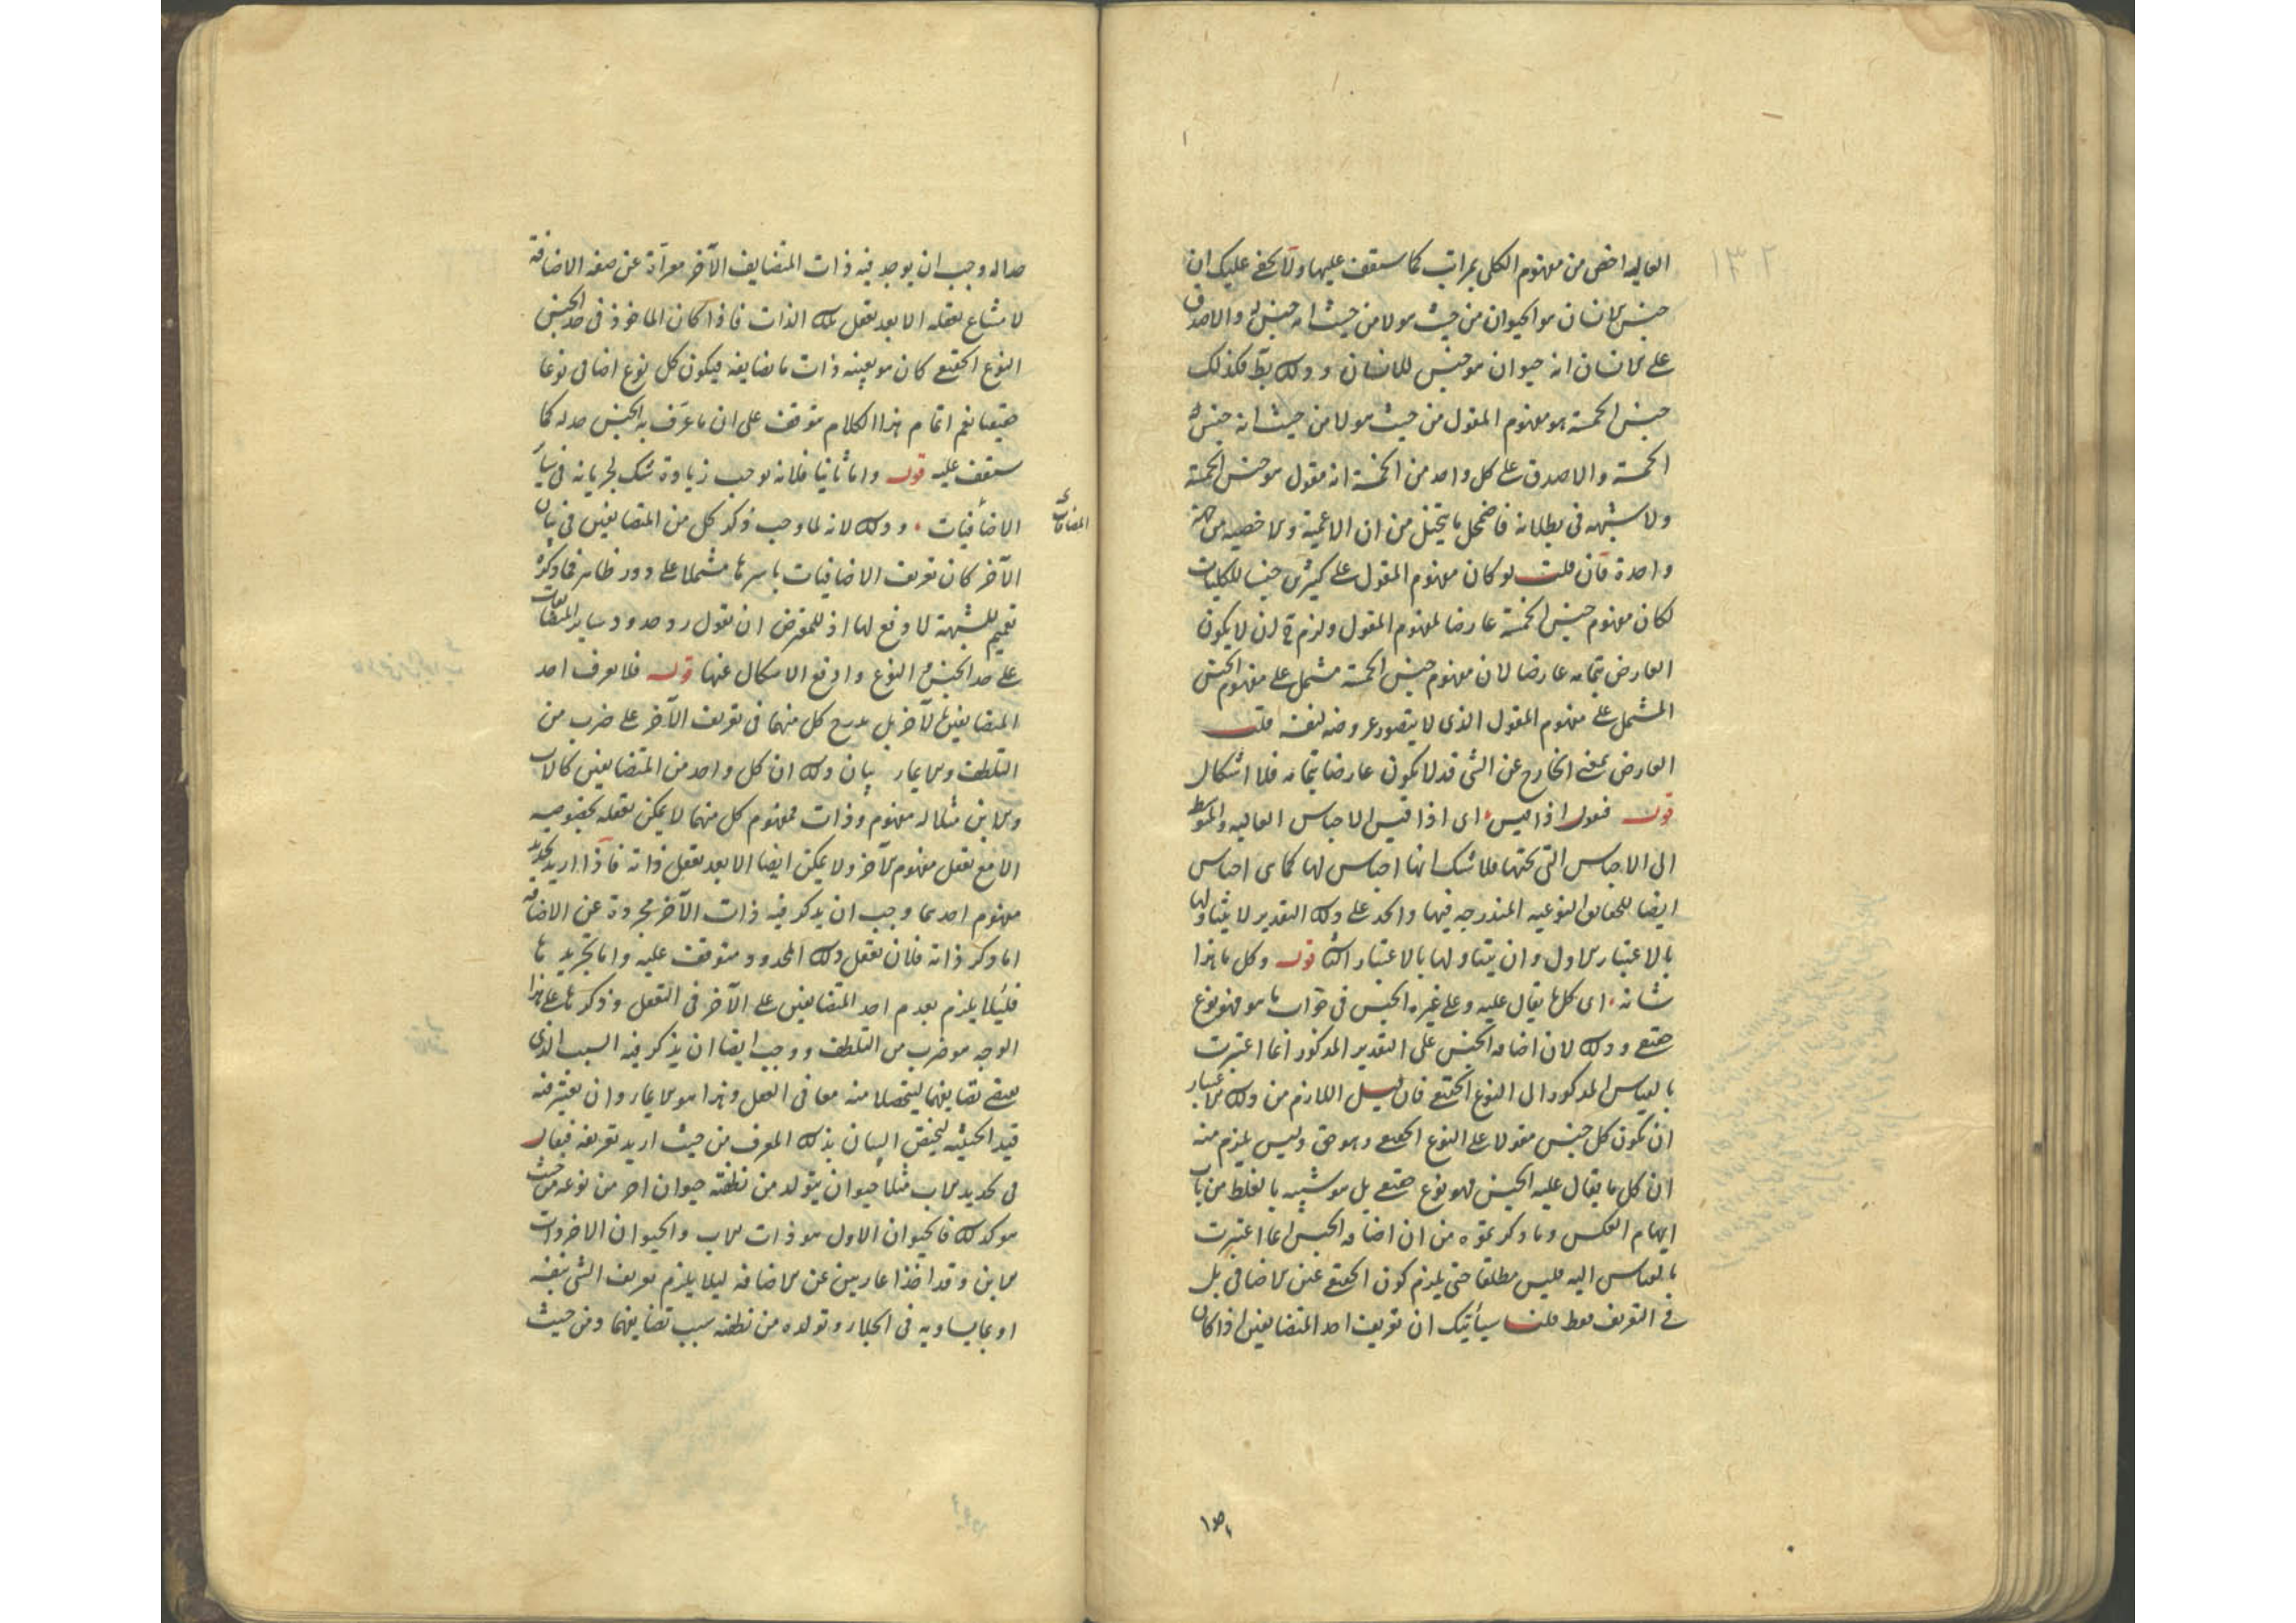 ١٣٢
العاليه اخص من مفهوم الكلى بمراتب كما ستقف عليها ولا يخفى عليك ان
جنس الانسان هو الحيوان من حيث هو لا من حيث انه جنس له والا صدق
على الانسان انه حيوان هو جنس للانسان وذلك بط فكذلك
جنس الخمسة هو مفهوم المقول من حيث هو لا من حيث انه جنس
الخمسة والا صدق على كل واحد من الخمسة انه مقول هو جنس الخمسة
ولا شبهه فى بطلانه فاضمحل ما يتخيل من ان الاعمية والاخصيه من جهة
واحدة فان قلت لو كان مفهوم المقول على كثيرين جنسا للكليات
لكان مفهوم جنس الخمسة عارضا لمفهوم المقول ولزم ح ان لا يكون
العارض بتمامه عارضا لان مفهوم جنس الخمسة مشتمل على مفهوم الجنس
المشتمل على مفهوم المقول الذى لا يتصور عروضه لنفسه قلت
العارض بمعنى الخارج عن الشى قد لا يكون عارضا بتمامه فلا اشكال
قوله فنقول اذا قيس اى اذا قيس الاجناس العاليه والمتوسطه
الى الاجناس التى تحتها فلا شك انها اجناس لها كما هى اجناس
ايضا للحقايق النوعيه المندرجه فيها والحد على ذلك التقدير لا يتناولها
بالاعتبار الاول وان يتناولها بالاعتبار الثانى قوله وكل ما هذا
شانه اى كل ما يقال عليه وعلى غيره الجنس فى جواب ما هو فهو نوع
حقيقى وذلك لان اضافه الجنس على التقدير المذكور انما اعتبرت
بالقياس المذكور الى النوع الحقيقى فان قيل اللازم من ذلك الاعتبار
ان يكون كل جنس مقولا على النوع الحقيقى وهو حق وليس يلزم منه
ان كل ما يقال عليه الجنس فهو نوع حقيقى بل هو شبيه بالغلط من باب
ايهام العكس وما ذكر تموه من ان اضافه الجنس انما اعتبرت
بالقياس اليه فليس مطلقا حتى يلزم كون الحقيقى عين الاضافى بل
فى التعريف فقط قلت سيأتيك ان تعريف احد المتضايفين اذا كان
حدا له وجب ان يوجد فيه ذات المتضايف الآخر معرّاة عن صفه الاضافة
لامتناع تعقله الا بعد تعقل تلك الذات فاذا كان الماخوذ فى حد الجنس
النوع الحقيقى كان هو بعينه ذات ما يضايفه فيكون كل نوع اضافى نوعا
حقيقيا نعم اتمام هذا الكلام متوقف على ان ما عرّف به الجنس حد له كما
ستقف عليه قوله واما ثانيا فلانه يوجب زيادة شك لجريانه فى سائر
الاضافيات وذلك لانه لما وجب ذكر كل من المتضايفين فى بيان
المضافات
الآخر كان تعريف الاضافيات باسرها مشتملا على دور ظاهر فما ذكره
تعميم للشبهة لا دفع لها اذ للمعترض ان يقول رد حدود ساير المتضايفات
على حد الجنس والنوع وادفع الاشكال عنها قوله فلا يعرف احد
المتضايفين بالآخر بل يدرج كل منهما فى تعريف الآخر على ضرب من
التلطف والايماء بيان ذلك ان كل واحد من المتضايفين كالاب
والابن مثلا له مفهوم وذات فمفهوم كل منهما لا يمكن تعقله بخصوصيه
الا مع تعقل مفهوم الآخر ولا يمكن ايضا الا بعد تعقل ذاته فاذا اريد تحديد
مفهوم احدهما وجب ان يذكر فيه ذات الآخر مجردة عن الاضافه
اما ذكر ذاته فلان تعقل ذلك المحدود متوقف عليه واما تجريدها
فلئلا يلزم تقدم احد المتضايفين على الآخر فى التعقل وذكرها على هذا
الوجه هو ضرب من التلطف ووجب ايضا ان يذكر فيه السبب الذى
يقتضى تضايفهما ليتحصلا منه معا فى العقل وهذا هو الايماء وان يعتبر فيه
قيد الحيثيه ليختص البيان بذلك المعرف من حيث اريد تعريفه فيقال
فى تحديد الاب مثلا حيوان يتولد من نطفته حيوان اخر من نوعه من حيث
هو كذلك فالحيوان الاول هو ذات الاب والحيوان الاخر ذات
الابن وقد اخذا عاريين عن الاضافه ليلا يلزم تعريف الشى بنفسه
او بما يساويه فى الجلاء وتولده من نطفته سبب تضايفهما ومن حيث